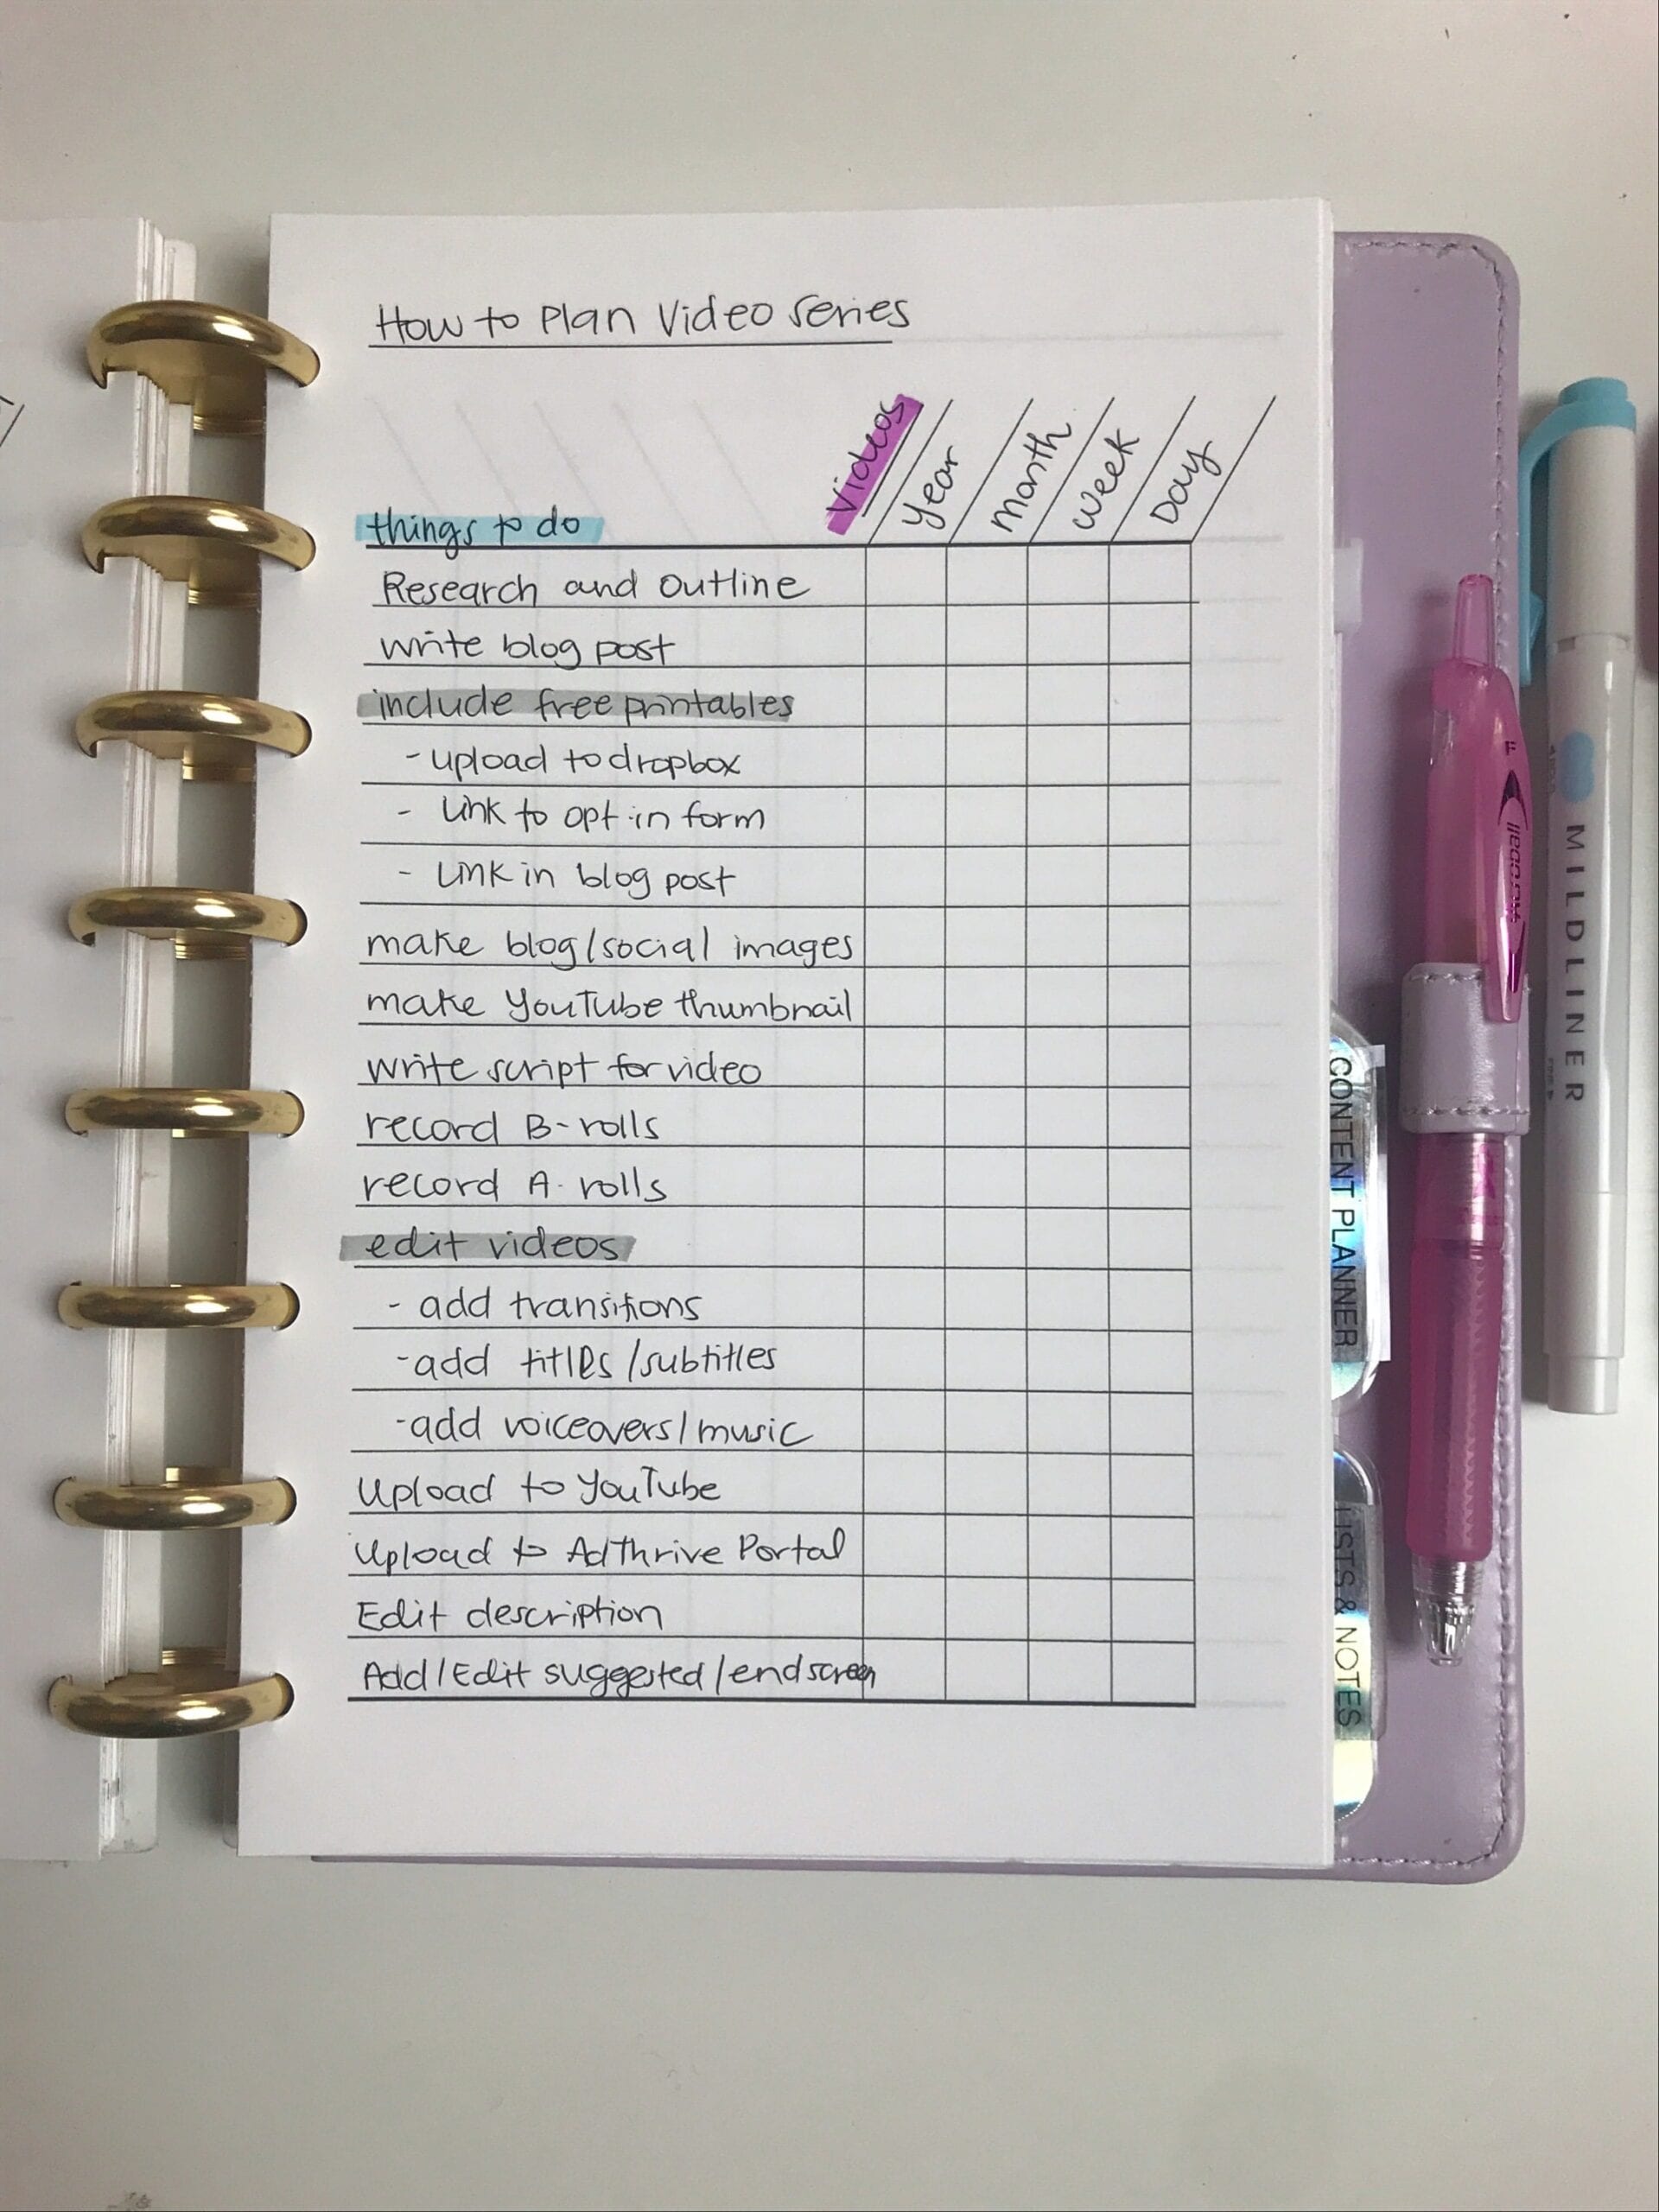 How to Plan Video Series
Videos
Year
Month
Week
Day
things to do
Research and Outline
write blog post
include free printables
- upload to dropbox
- Link to opt-in form
- Link in blog post
make blog/social images
make YouTube thumbnail
write script for video
record B-rolls
record A-rolls
edit videos
- add transitions
- add titles/subtitles
- add voiceovers/music
Upload to YouTube
Upload to AdThrive Portal
Edit description
Add/Edit suggested/endscreen
CONTENT PLANNER
LISTS & NOTES
MILDLINER